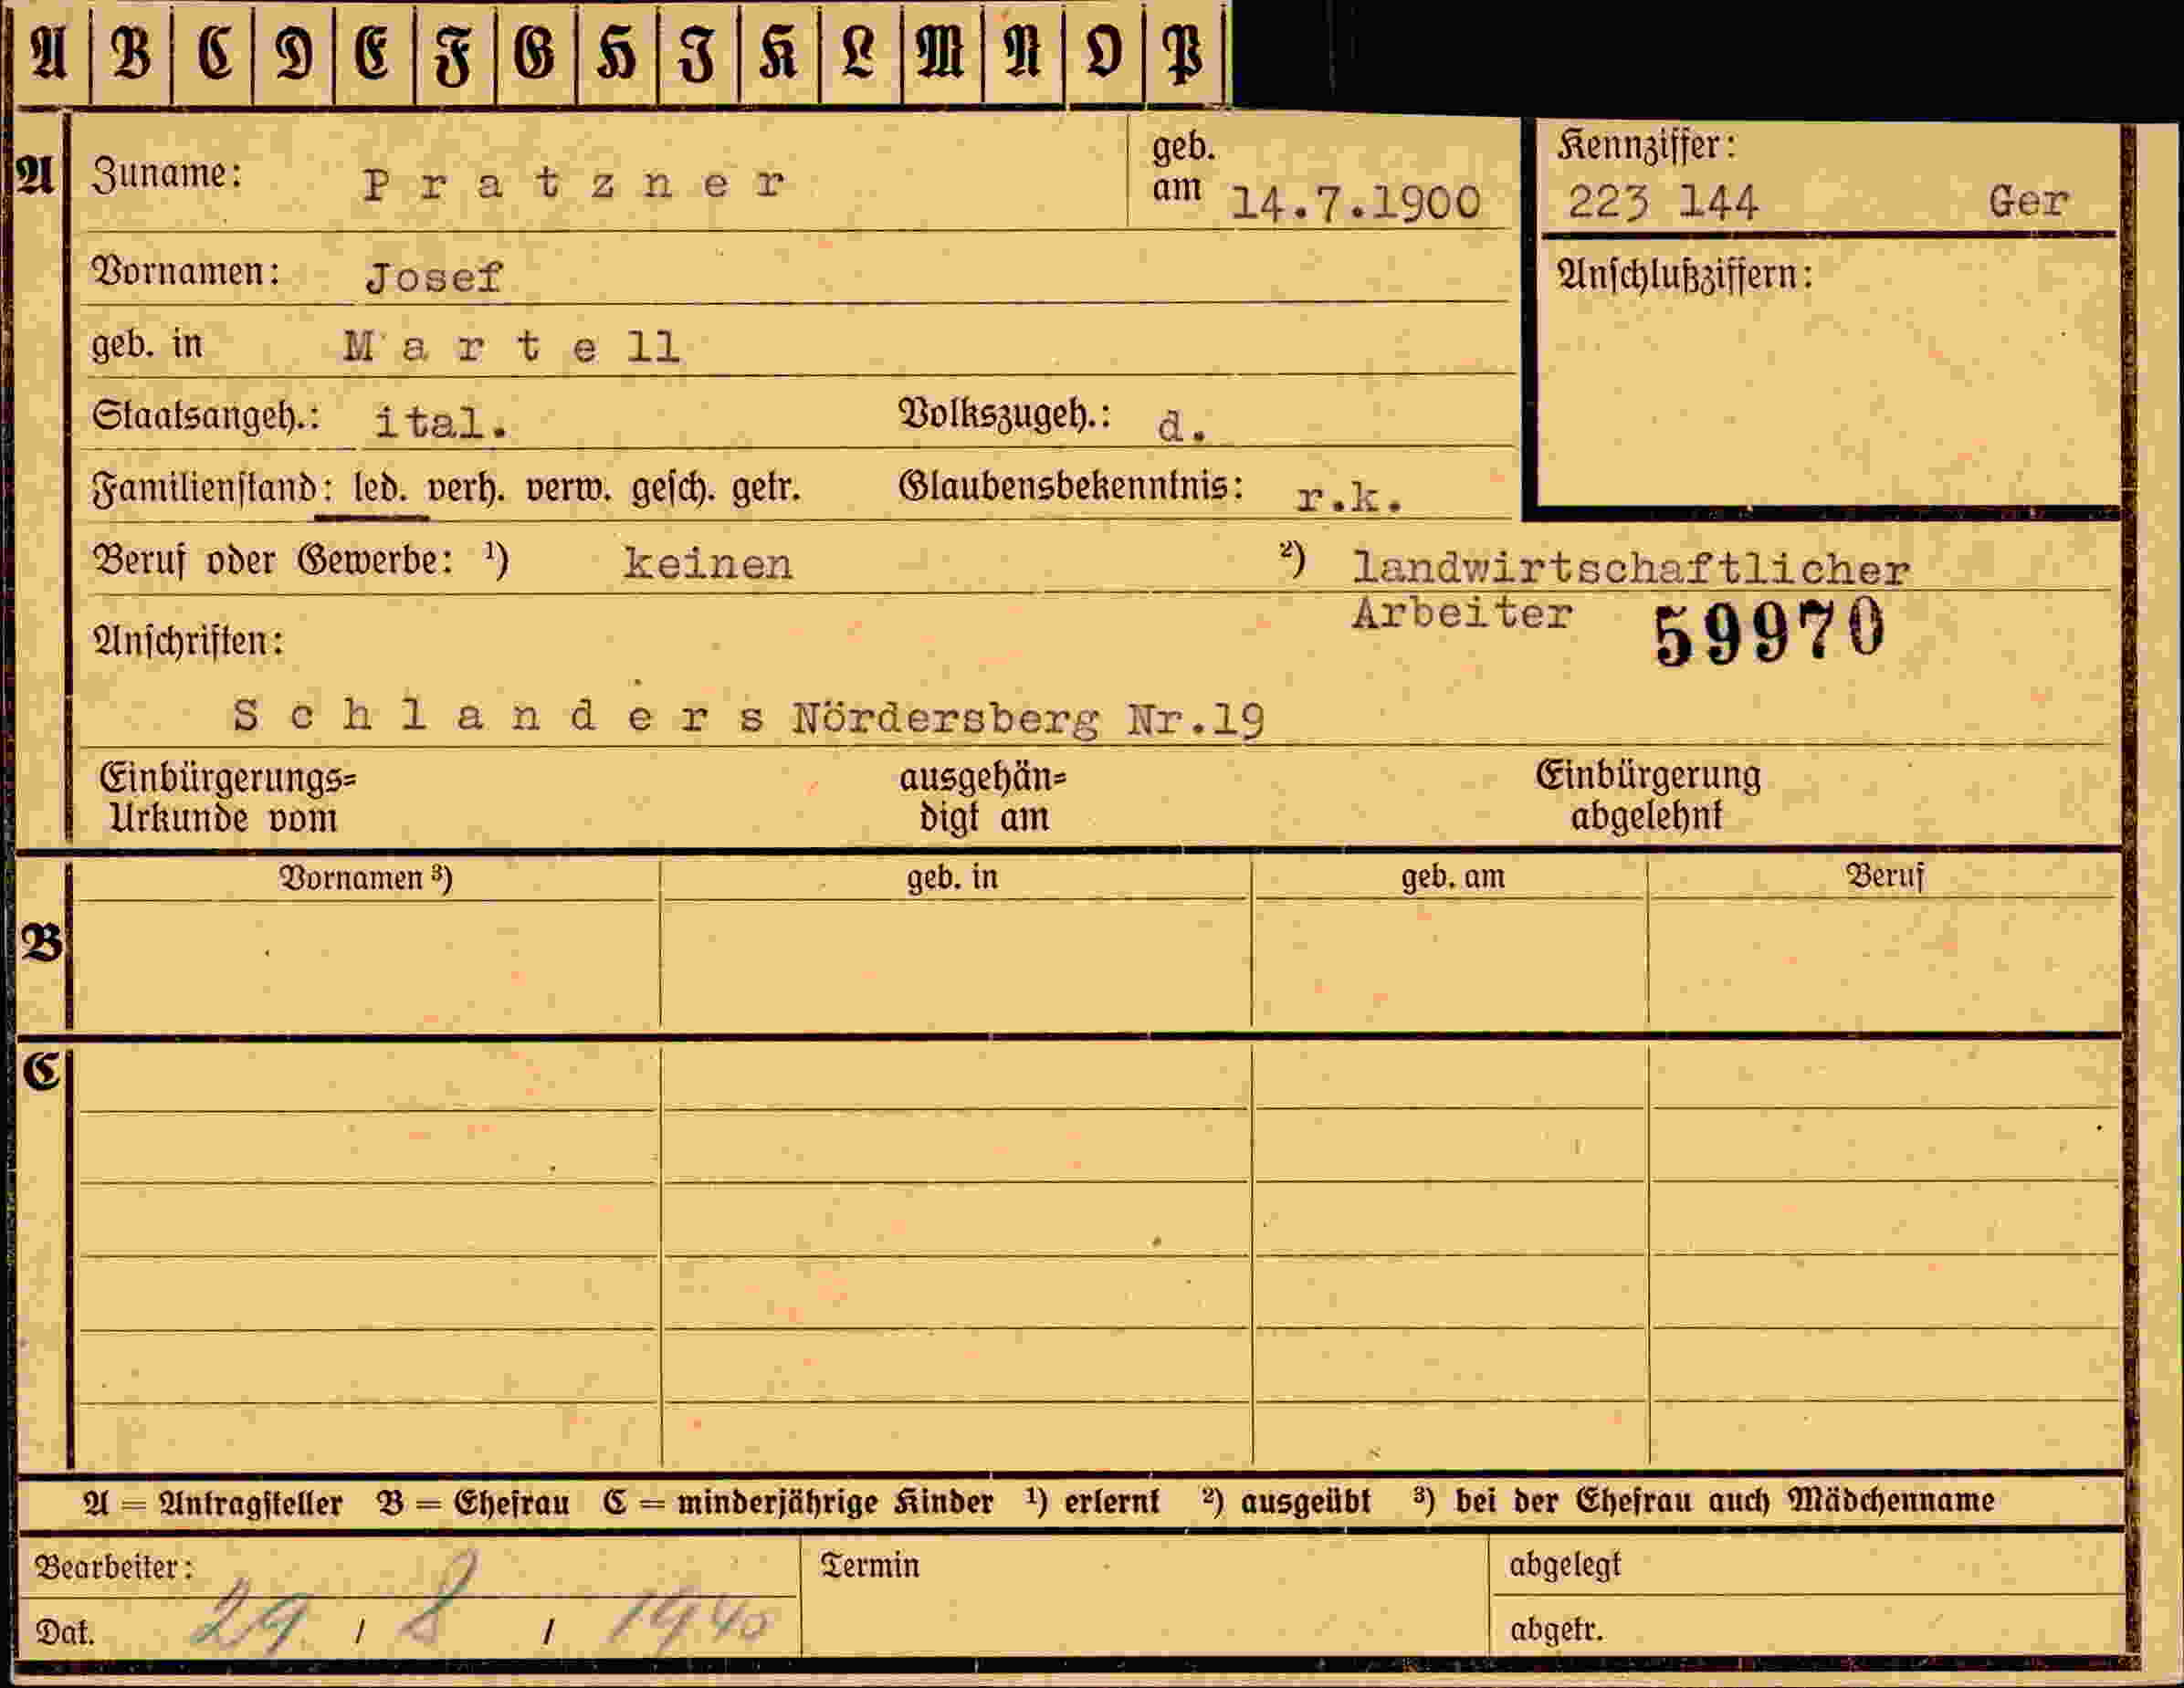 A B C D E F G H I K L M N O P
A Zuname: Pratzner geb. am 14.7.1900 Kennziffer: 223 144 Ger
Vornamen: Josef Anschlußziffern:
geb. in Martell
Staatsangeh.: ital. Volkszugeh.: d.
Familienstand: led. verh. verw. gesch. getr. Glaubensbekenntnis: r.k.
Beruf oder Gewerbe: ¹) keinen ²) landwirtschaftlicher
Arbeiter 59970
Anschriften:
Schlanders Nördersberg Nr.19
Einbürgerungs= ausgehän= Einbürgerung
Urkunde vom digt am abgelehnt
Vornamen ³) geb. in geb. am Beruf
B
C
A = Antragsteller B = Ehefrau C = minderjährige Kinder ¹) erlernt ²) ausgeübt ³) bei der Ehefrau auch Mädchenname
Bearbeiter: Termin abgelegt
Dat. 29 / 8 / 1940 abgetr.